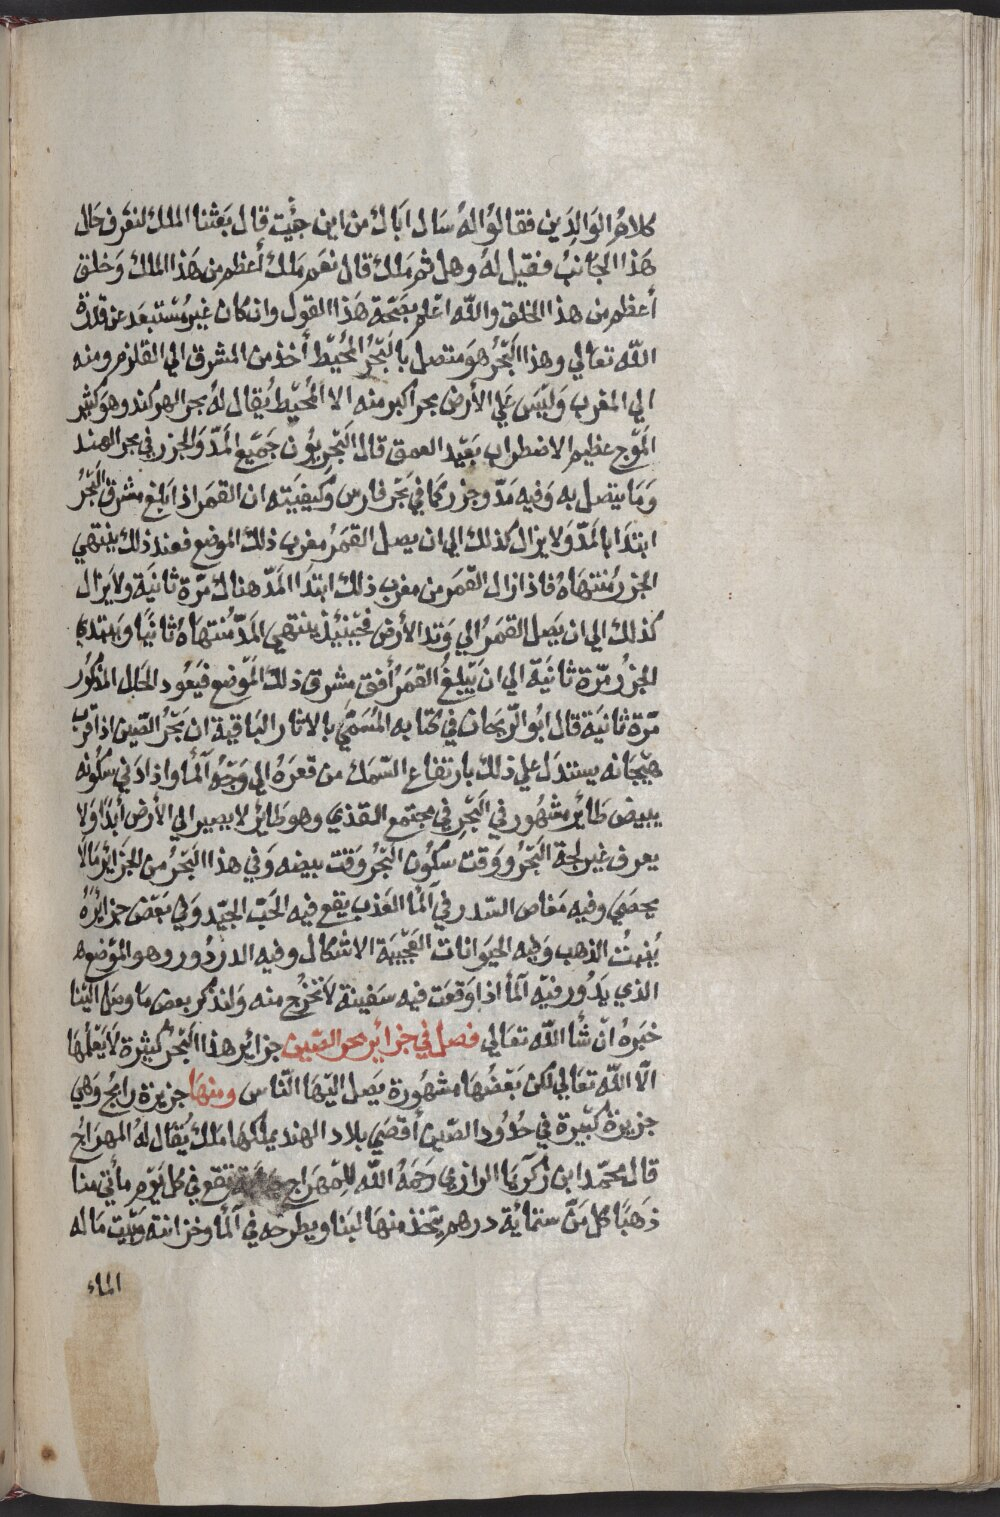 كلامُ الوَالِدَين فقالوُا لهُ سَال ابَاك من اين جئِت قال بَعثنا الملك لنعَرف حَال
هَذا الجَانبُ فقيل لهُ وهل ثم مَلك قال نعَم مَلك أعظم من هَذا الملك وَخلق
أعظم من هذا الخلق والله اعْلم بصَحّة هَذا القول وان كان غيرمُسْتبعَد عن قدرة
الله تعَالي وهذا البَحْرُ هوَ متصل بالبَحْرُ المُحيْط أخذ من المشرق الي القلزم ومنه
الي المغرب وَليسَ عَلي الأرض بحر اكبر منه الا المُحيْط يُقال لهُ بحر الهركند وهوَكثير
المَوْج عظيم الاضطراب بَعيْد العمق قال البَحْريوُن جَميْع المَدّ وَالجزر في بحر الهند
وَمَا يتصل به وَفيه مَدّ وجزر كما في بَحْر فارس وَكيفيَته ان القمَر اذا بَلغ مشرق البَحْرُ
ابتدَا بالمَدّ وَلا يزال كذلك الي ان يصل القمَرُ مغرب ذلك الموضع فعند ذلك ينتهي
الجزر مُنتهَاهُ فاذا زال القمَر من مغرب ذلك ابتدَا المَدّ هناك مَرّة ثانيَة ولا يزال
كذلك الي ان يَصل القمَرُ الي وَتد الأرض فحيْنئِذ ينتهي المَدّ مُنتهَاهُ ثانيًا وَيبتدي
الجزرُ مرّة ثانيَة الي ان يَبلغُ القمَرُ أفق مشرق ذلك المَوْضع فيَعُود الحَال المَذكوُر
مَرّة ثانيَة قال ابُو الرّيحَان في كتابه المُسَمّي بالاثار البَاقية ان بَحْرُ الصّين اذا قرب
هيَجَانه يستدَل علي ذلك بارتفاع السّمَك من قعَرهُ الي وَجْهُ المأ واذا دَنى سُكونه
يبيض طَائر مشهُور في البَحْرِ في مجتمع القذي وهو طَائر لا يصير الي الأرض أبدًا وَلا
يعرف غير لجة البَحْرُ ووَقت سُكوُن البَحْرُ وَقت بيضه وَفي هذا البَحْرُ من الجزَائر مَالا
يحصَي وفيه مغَاص الدّر في المأ العَذب يقع فيه الحَبّ الجيّد وَفي بَعْض جزائرهُ
يُنبتُ الذهب وَفيه الحيَوانات العَجيْبَة الاشكال وفيه الدردُور وهو المَوْضع
الذي يَدُور فيْه المأ اذا وَقعَت فيه سَفينة لا تخرُج منه وَلنذكر بعض مَا وصَل اليْنا
خبَرهُ انْ شأ الله تعَالي فصل في جزائر بحر الصّين جزائر هذا البَحْر كثيرة لا يَعْلمُها
الّا الله تعَالي لكن بَعْضُهَا مشهُورة يَصل اليْهَا النّاس ومنهَا جزيرة رابج وَهي
جزيرة كبيْرة في حُدُود الصّين أقصَي بلاد الهند يملكهَا مَلك يُقال لهُ المهرَاج
قال محمّد ابن زكَرَيا الرازي رَحَمهُ الله للمهَراج تقع في كل يَوْم مأتي منا
ذهبًا كل مَنّ ستمائة درهم يتّخذ منهَا لبَنا ويطرحه في المأ وخزانته وَبيت مَا له
الماء